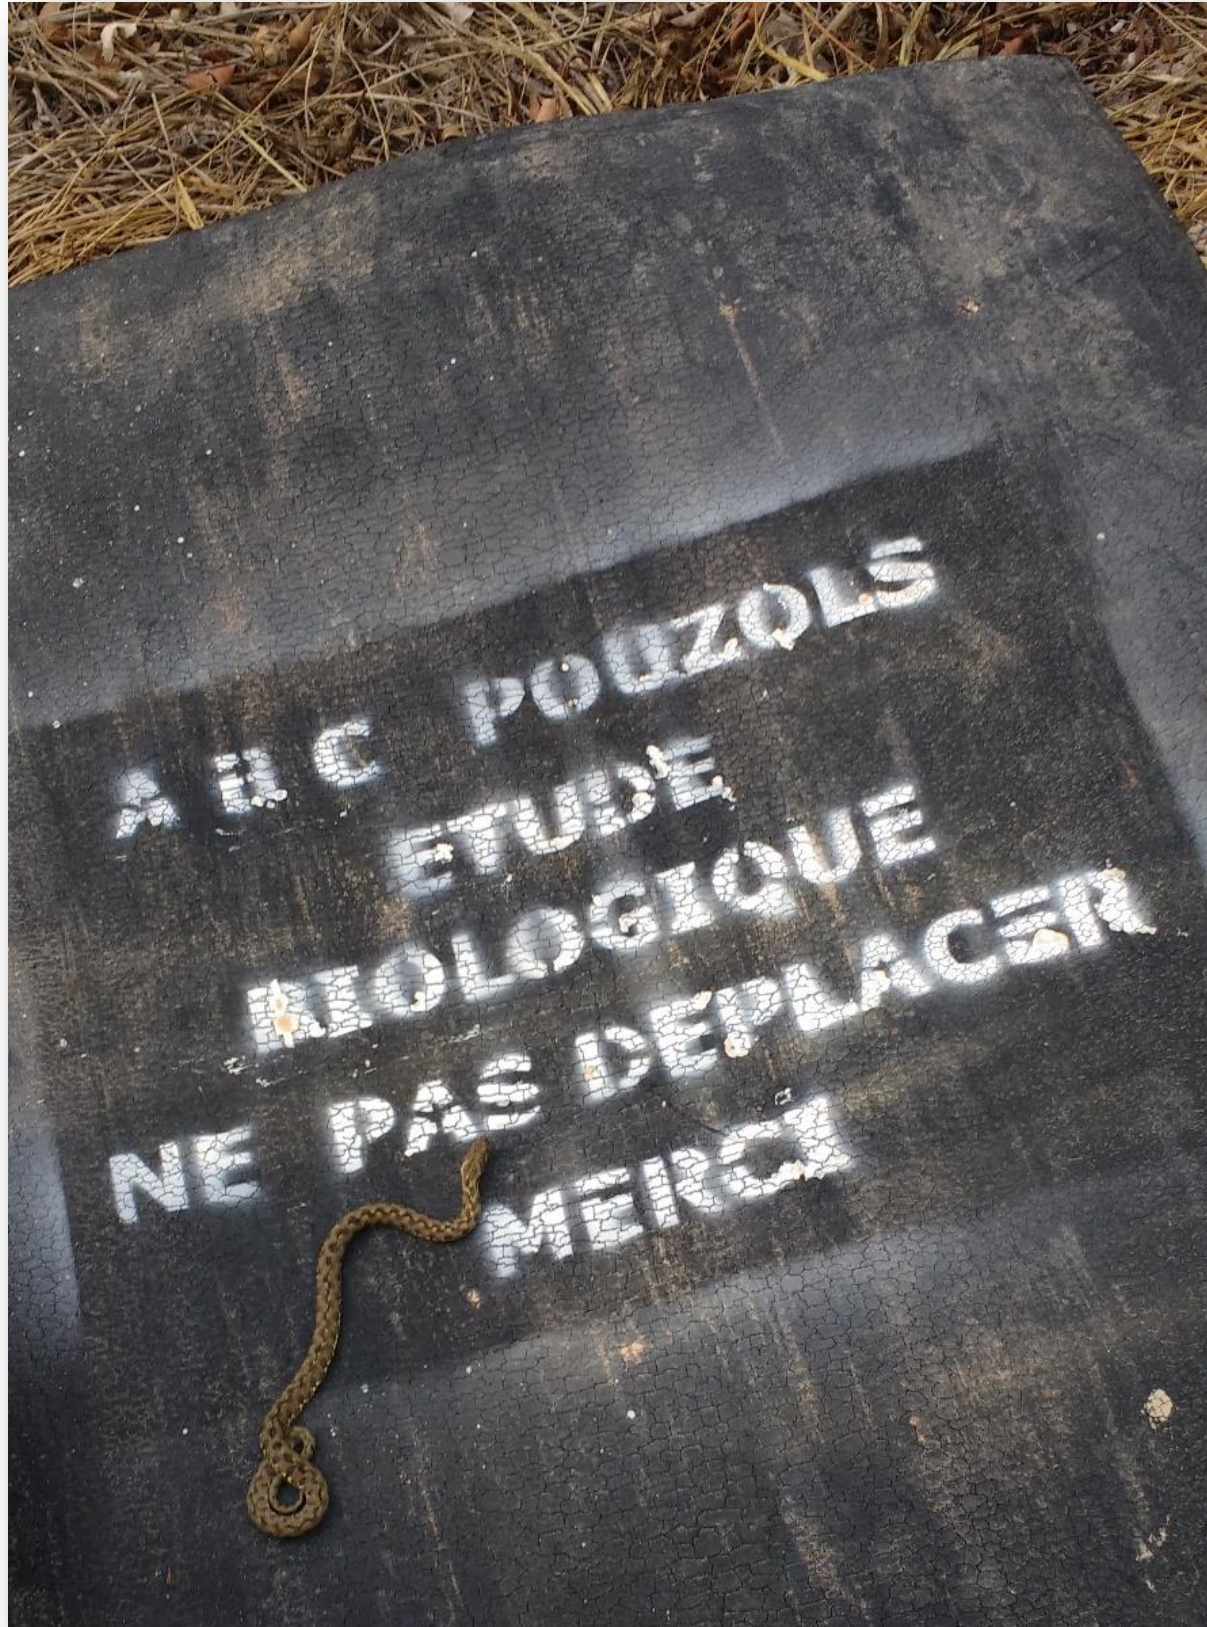 ABC POUZOLS
ETUDE
BIOLOGIQUE
NE PAS DEPLACER
MERCI